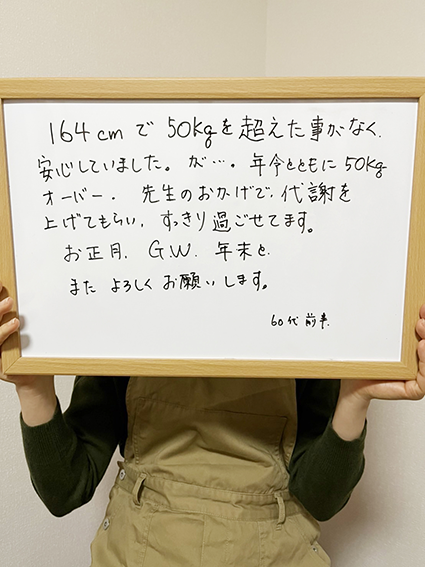 164cmで 50Kgを超えた事がなく.
安心していました。が…。年令とともに50Kg
オーバー. 先生のおかげで、代謝を
上げてもらい、すっきり過ごせてます。
お正月. GW. 年末と.
また よろしく お願いします。
60代 前半.